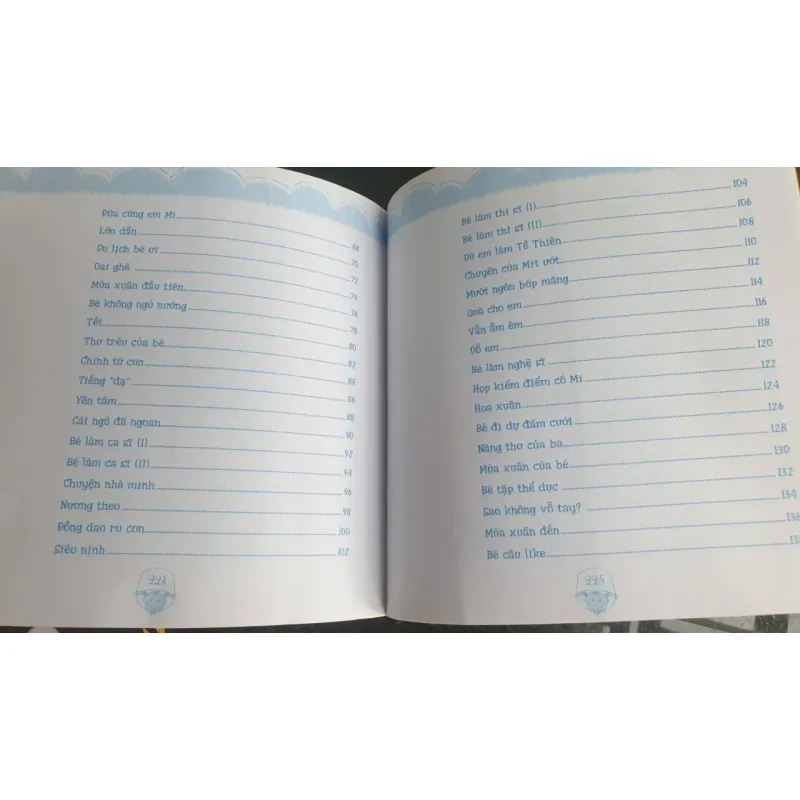 Đùa cùng em Mì 68
Lớn dần 70
Du lịch bé ơi 72
Oai ghê 74
Mùa xuân đầu tiên 76
Bé không ngủ nướng 78
Tết 80
Thơ trêu của bé 82
Chính từ con 84
Tiếng "dạ" 86
Yên tâm 88
Cái ngủ đã ngoan 90
Bé làm ca sĩ (I) 92
Bé làm ca sĩ (II) 94
Chuyện nhà mình 96
Nương theo 98
Đồng dao ru con 100
Siêu nịnh 102
224
Bé làm thi sĩ (I) 104
Bé làm thi sĩ (II) 106
Dù em làm Tề Thiên 108
Chuyện của Mít ướt 110
Mười ngón búp măng 112
Quà cho em 114
Vần ầm êm 116
Dỗ em 118
Bé làm nghệ sĩ 120
Họp kiểm điểm cô Mì 122
Hoa xuân 124
Bé đi dự đám cưới 126
Nàng thơ của ba 128
Mùa xuân của bé 130
Bé tập thể dục 132
Sao không vỗ tay? 134
Mùa xuân đến
Bé câu like
225